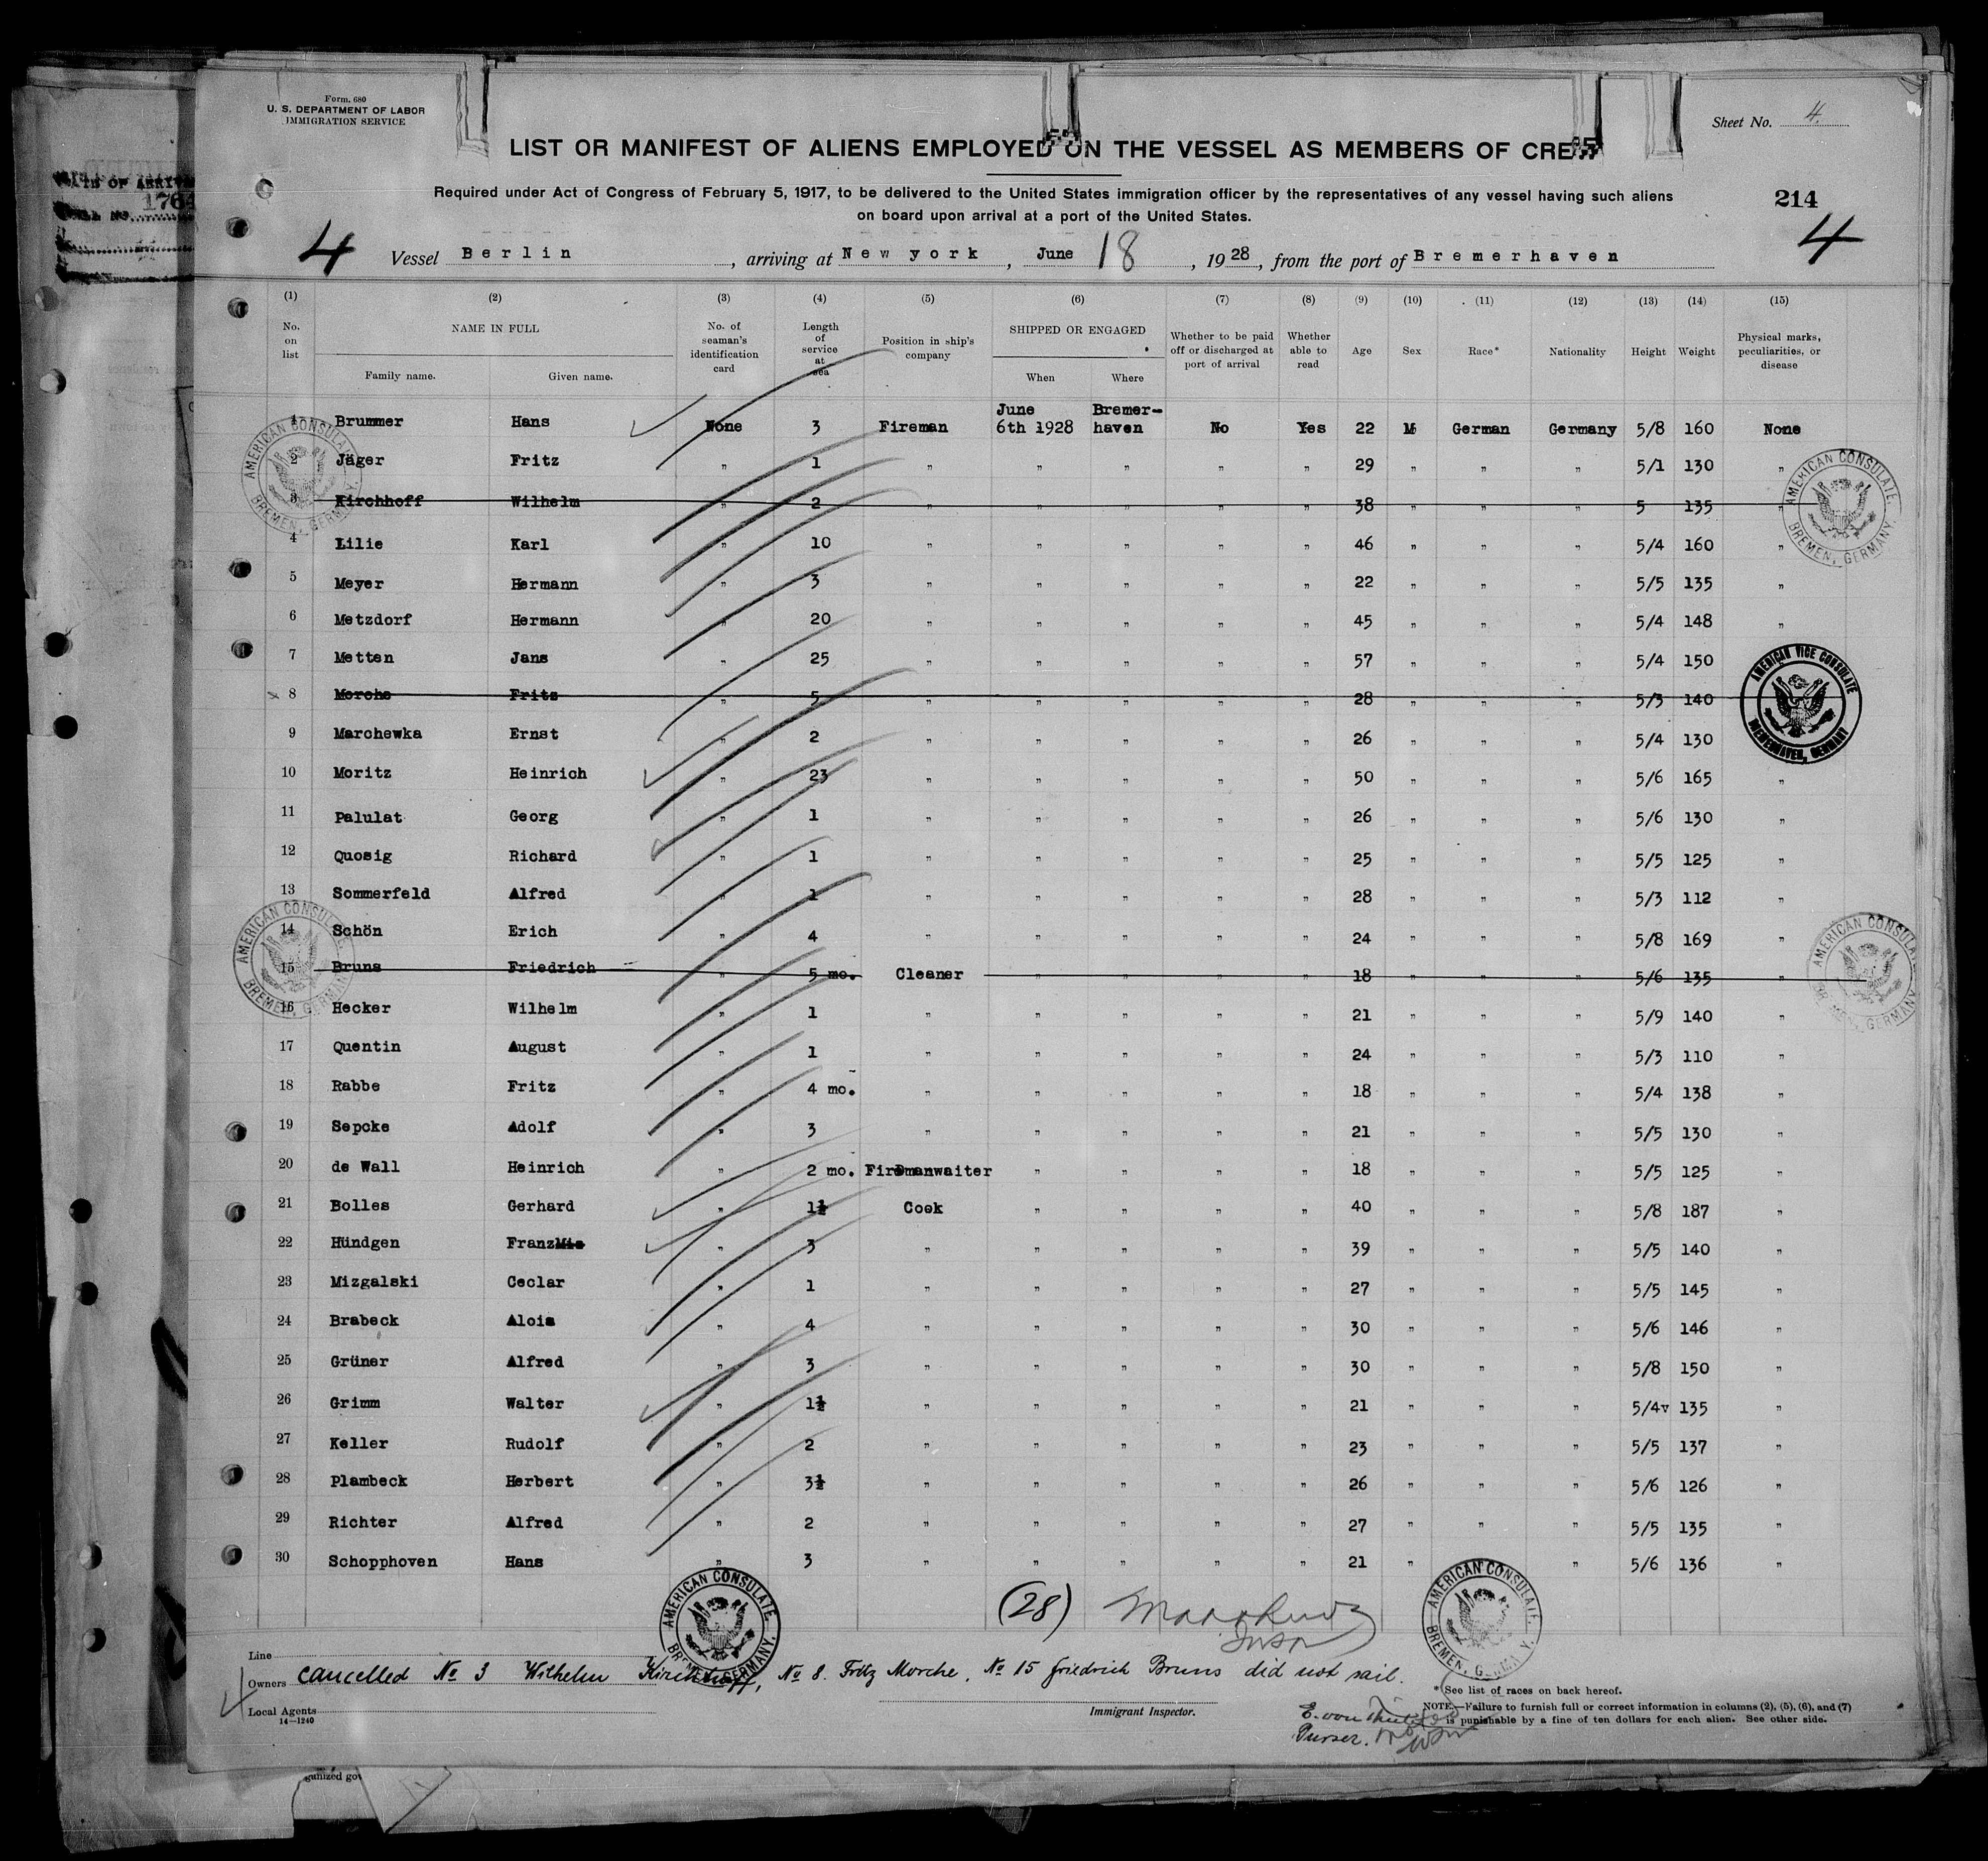 Form 680
U. S. DEPARTMENT OF LABOR
IMMIGRATION SERVICE
Sheet No. 4
LIST OR MANIFEST OF ALIENS EMPLOYED ON THE VESSEL AS MEMBERS OF CREW
Required under Act of Congress of February 5, 1917, to be delivered to the United States immigration officer by the representatives of any vessel having such aliens
on board upon arrival at a port of the United States.
214
4 Vessel Berlin, arriving at New york, June 18, 1928, from the port of Bremerhaven 4
(1) (2) (3) (4) (5) (6) (7) (8) (9) (10) (11) (12) (13) (14) (15)
No. on list NAME IN FULL Family name. Given name. No. of seaman's identification card Length of service at sea Position in ship's company SHIPPED OR ENGAGED When Where Whether to be paid off or discharged at port of arrival Whether able to read Age Sex Race* Nationality Height Weight Physical marks, peculiarities, or disease
1 Brummer Hans None 3 Fireman June 6th 1928 Bremer-haven No Yes 22 M German Germany 5/8 160 None
2 Jäger Fritz " 1 " " " " " 29 " " " 5/1 130 "
3 Kirchhoff Wilhelm " 2 " " " " " 38 " " " 5 135 "
4 Lilie Karl " 10 " " " " " 46 " " " 5/4 160 "
5 Meyer Hermann " 3 " " " " " 22 " " " 5/5 135 "
6 Metzdorf Hermann " 20 " " " " " 45 " " " 5/4 148 "
7 Metten Jans " 25 " " " " " 57 " " " 5/4 150
8 Morche Fritz " 5 " " " " " 28 " " " 5/3 140
9 Marchewka Ernst " 2 " " " " " 26 " " " 5/4 130
10 Moritz Heinrich " 23 " " " " " 50 " " " 5/6 165 "
11 Palulat Georg " 1 " " " " " 26 " " " 5/6 130 "
12 Quosig Richard " 1 " " " " " 25 " " " 5/5 125 "
13 Sommerfeld Alfred " 1 " " " " " 28 " " " 5/3 112 "
14 Schön Erich " 4 " " " " " 24 " " " 5/8 169 "
15 Bruns Friedrich " 5 mo. Cleaner " " " " 18 " " " 5/6 135 "
16 Hecker Wilhelm " 1 " " " " " 21 " " " 5/9 140 "
17 Quentin August " 1 " " " " " 24 " " " 5/3 110 "
18 Rabbe Fritz " 4 mo. " " " " " 18 " " " 5/4 138 "
19 Sepcke Adolf " 3 " " " " " 21 " " " 5/5 130 "
20 de Wall Heinrich " 2 mo. Firemanwaiter " " " " 18 " " " 5/5 125 "
21 Bolles Gerhard " 1½ Cook " " " " 40 " " " 5/8 187 "
22 Hündgen Franz " 3 " " " " " 39 " " " 5/5 140 "
23 Mizgalski Ceclar " 1 " " " " " 27 " " " 5/5 145 "
24 Brabeck Alois " 4 " " " " " 30 " " " 5/6 146 "
25 Grüner Alfred " 3 " " " " " 30 " " " 5/8 150 "
26 Grimm Walter " 1½ " " " " " 21 " " " 5/4v 135 "
27 Keller Rudolf " 2 " " " " " 23 " " " 5/5 137 "
28 Plambeck Herbert " 3½ " " " " " 26 " " " 5/6 126 "
29 Richter Alfred " 2 " " " " " 27 " " " 5/5 135 "
30 Schopphoven Hans " 3 " " " " " 21 " " 5/6 136 "
(28)
AMERICAN CONSULATE. BREMEN, GERMANY.
AMERICAN CONSULATE. BREMEN, GERMANY.
AMERICAN VICE CONSULATE BREMERHAVEN, GERMANY
AMERICAN CONSULATE. BREMEN, GERMANY.
AMERICAN CONSULATE. BREMEN, GERMANY.
AMERICAN CONSULATE. BREMEN, GERMANY.
AMERICAN CONSULATE. BREMEN, GERMANY.
Line
Owners cancelled No 3 Wilhelm Kirchhoff, No 8. Fritz Morche, No 15 Friedrich Bruns did not sail.
Local Agents
14—1240
Immigrant Inspector.
E. von
Purser.
* See list of races on back hereof.
NOTE.—Failure to furnish full or correct information in columns (2), (5), (6), and (7)
is punishable by a fine of ten dollars for each alien. See other side.